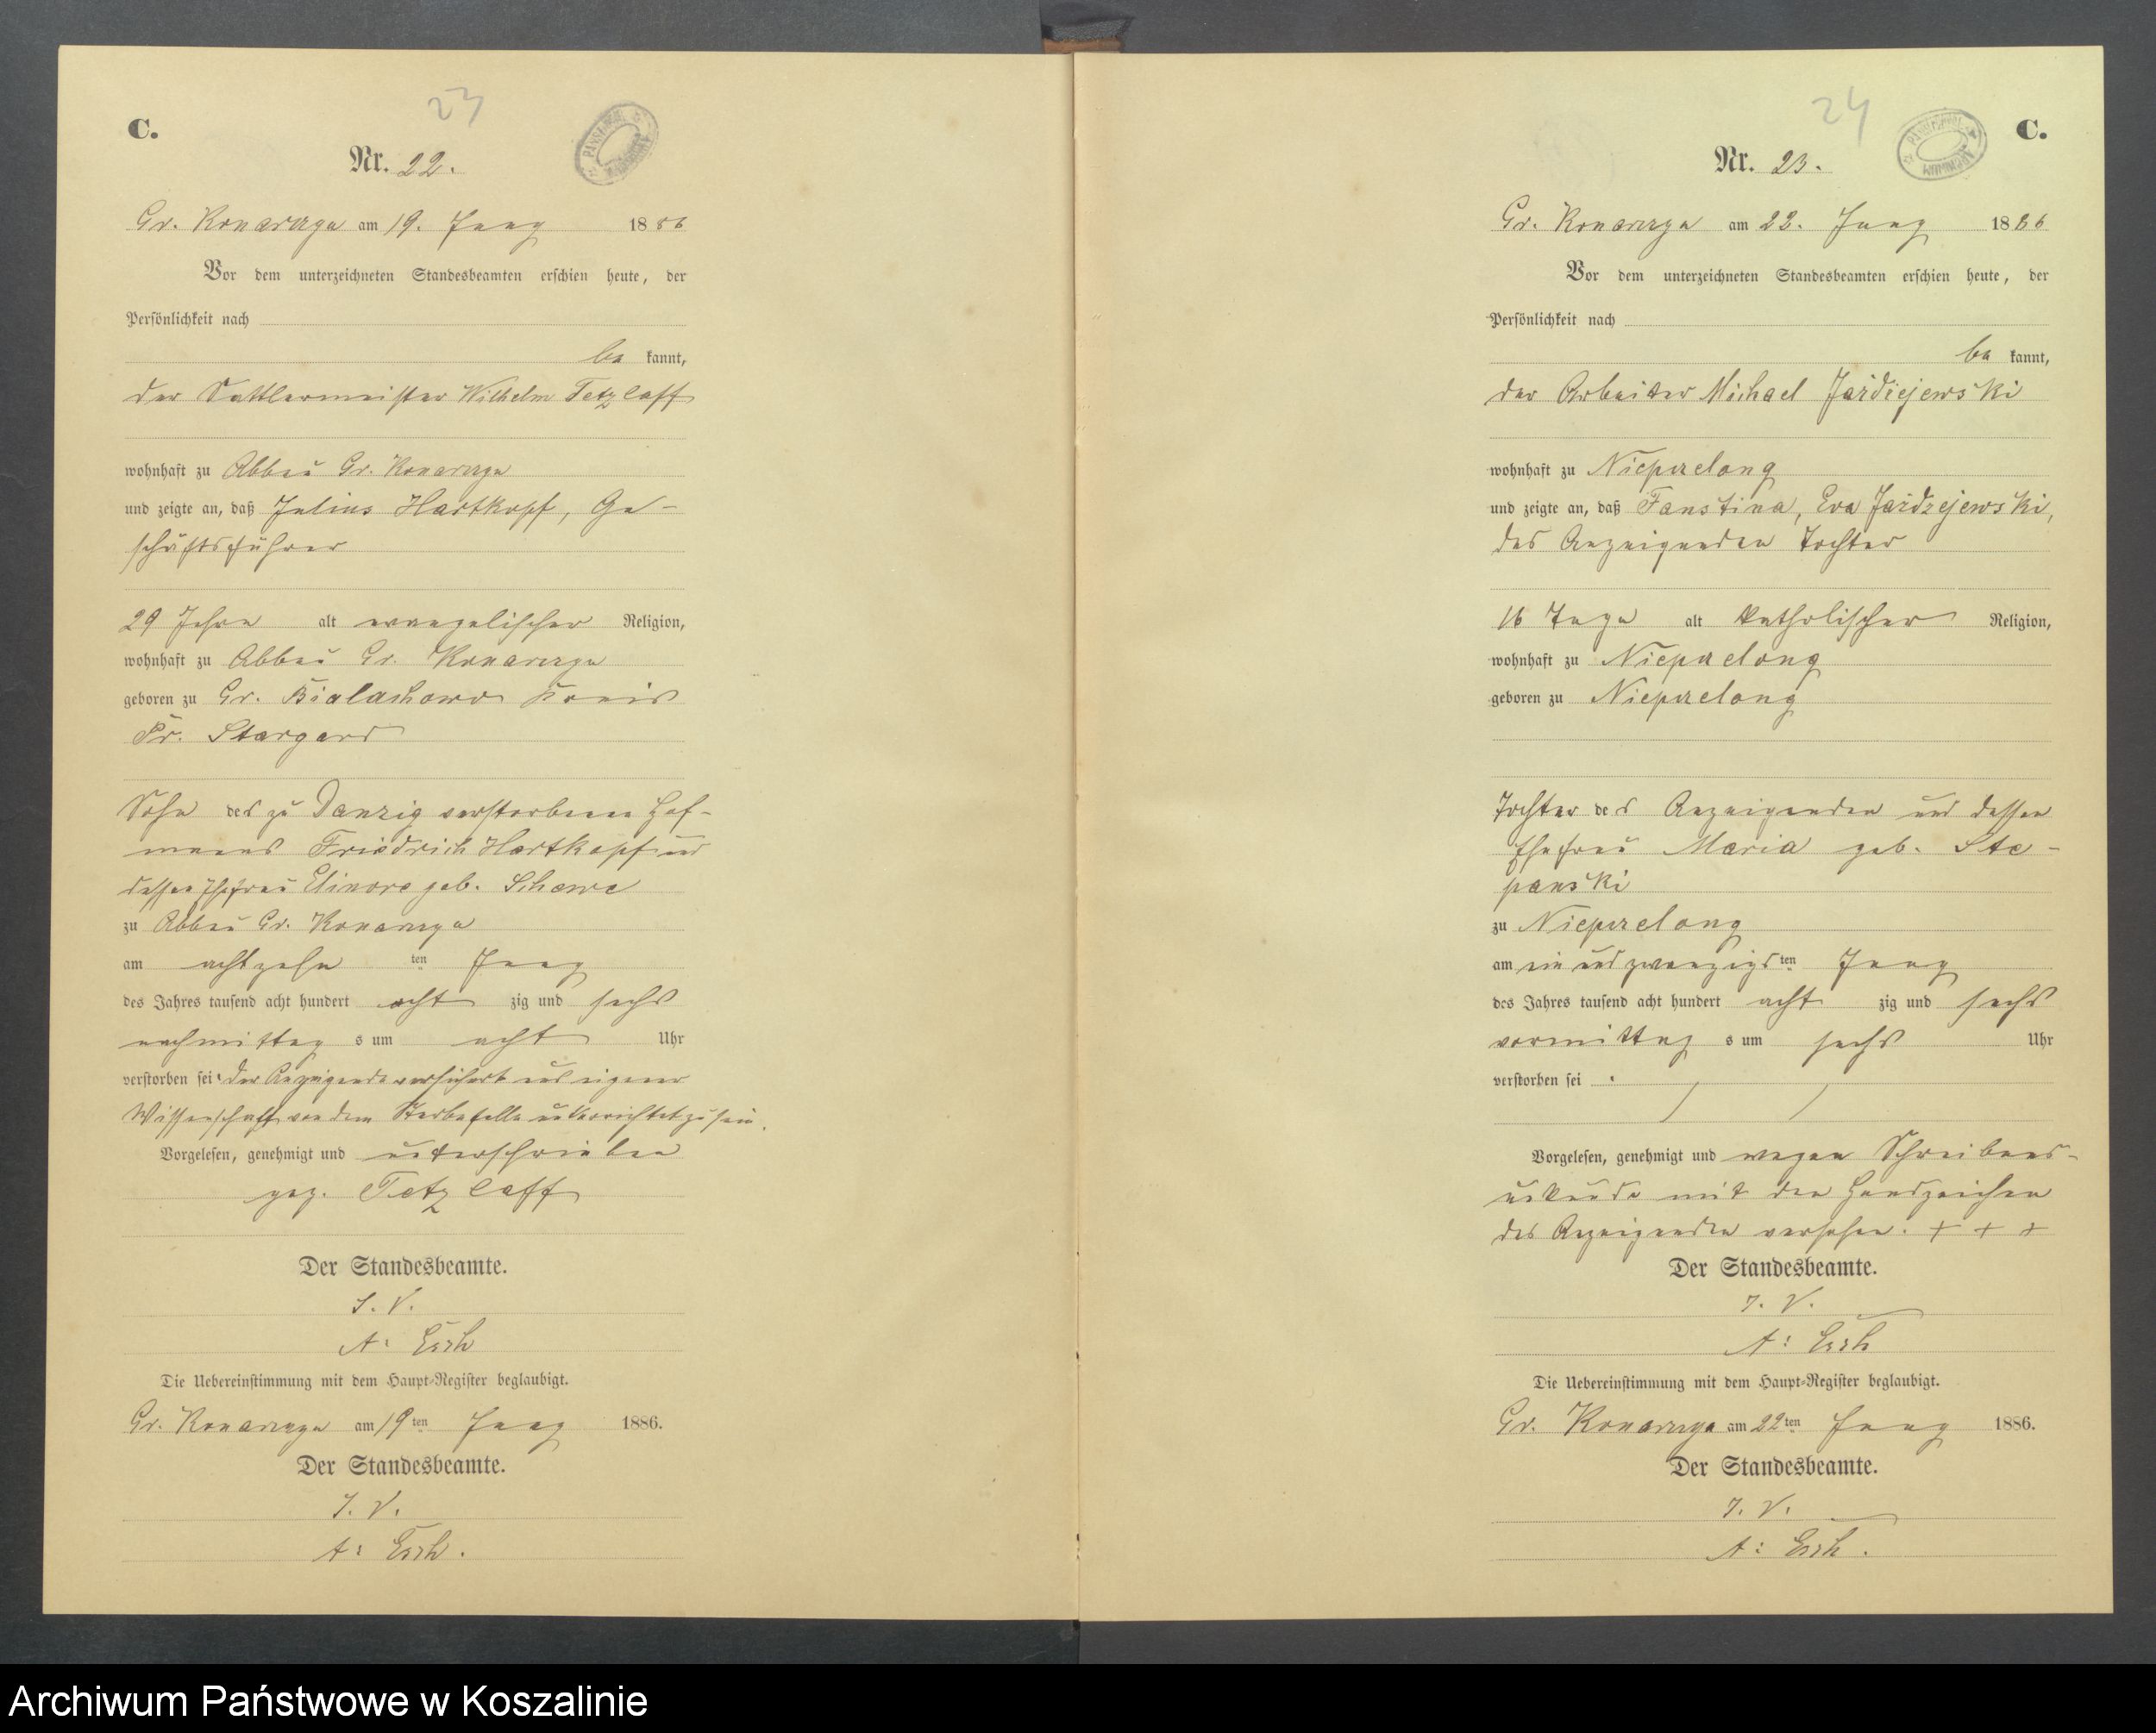 23
C.
Nr. 22.
Gr. Konarczyn am 19. Juny 1886
Vor dem unterzeichneten Standesbeamten erschien heute, der
Persönlichkeit nach
be kannt,
der Sattlermeister Wilhelm Tetzlaff
wohnhaft zu Abbau Gr. Konarczyn
und zeigte an, daß Julius Hartkopf, Ge-
schäftsführer
29 Jahre alt evangelischer Religion,
wohnhaft zu Abbau Gr. Konarczyn
geboren zu Gr. Bialachowo Kreis
Pr. Stargard
Sohn des zu Danzig verstorbenen Hof-
manns Friedrich Hartkopf und
dessen Ehefrau Elinore geb.
zu Abbau Gr. Konarczyn
am achtzehn ten Juny
des Jahres tausend acht hundert acht zig und sechs
nachmittag s um acht Uhr
verstorben sei. Der Anzeigende versichert aus eigener
Wissenschaft von dem Sterbefalle unterrichtet zu sein.
Vorgelesen, genehmigt und unterschrieben
gez. Tetzlaff
Der Standesbeamte.
I. V.
A:
Die Uebereinstimmung mit dem Haupt-Register beglaubigt.
Gr. Konarczyn am 19ten Juny 1886.
Der Standesbeamte.
I. V.
A:
24
C.
Nr. 23.
Gr. Konarczyn am 22. Juny 1886
Vor dem unterzeichneten Standesbeamten erschien heute, der
Persönlichkeit nach
be kannt,
der Arbeiter Michael Jażdżejewski
wohnhaft zu Niepszelong
und zeigte an, daß Faustina, Eva Jażdżejewski,
des Anzeigenden Tochter
16 Tage alt katholischer Religion,
wohnhaft zu Niepszelong
geboren zu Niepszelong
Tochter des Anzeigenden und dessen
Ehefrau Maria geb. Ste-
panski
zu Niepszelong
am ein und zwanzigsten Juny
des Jahres tausend acht hundert acht zig und sechs
vormittag s um sechs Uhr
verstorben sei.
Vorgelesen, genehmigt und wegen Schreibens-
unkunde mit den Handzeichen
des Anzeigenden versehen. + + +
Der Standesbeamte.
I. V.
A:
Die Uebereinstimmung mit dem Haupt-Register beglaubigt.
Gr. Konarczyn am 22ten Juny 1886.
Der Standesbeamte.
I. V.
A:
Archiwum Państwowe w Koszalinie